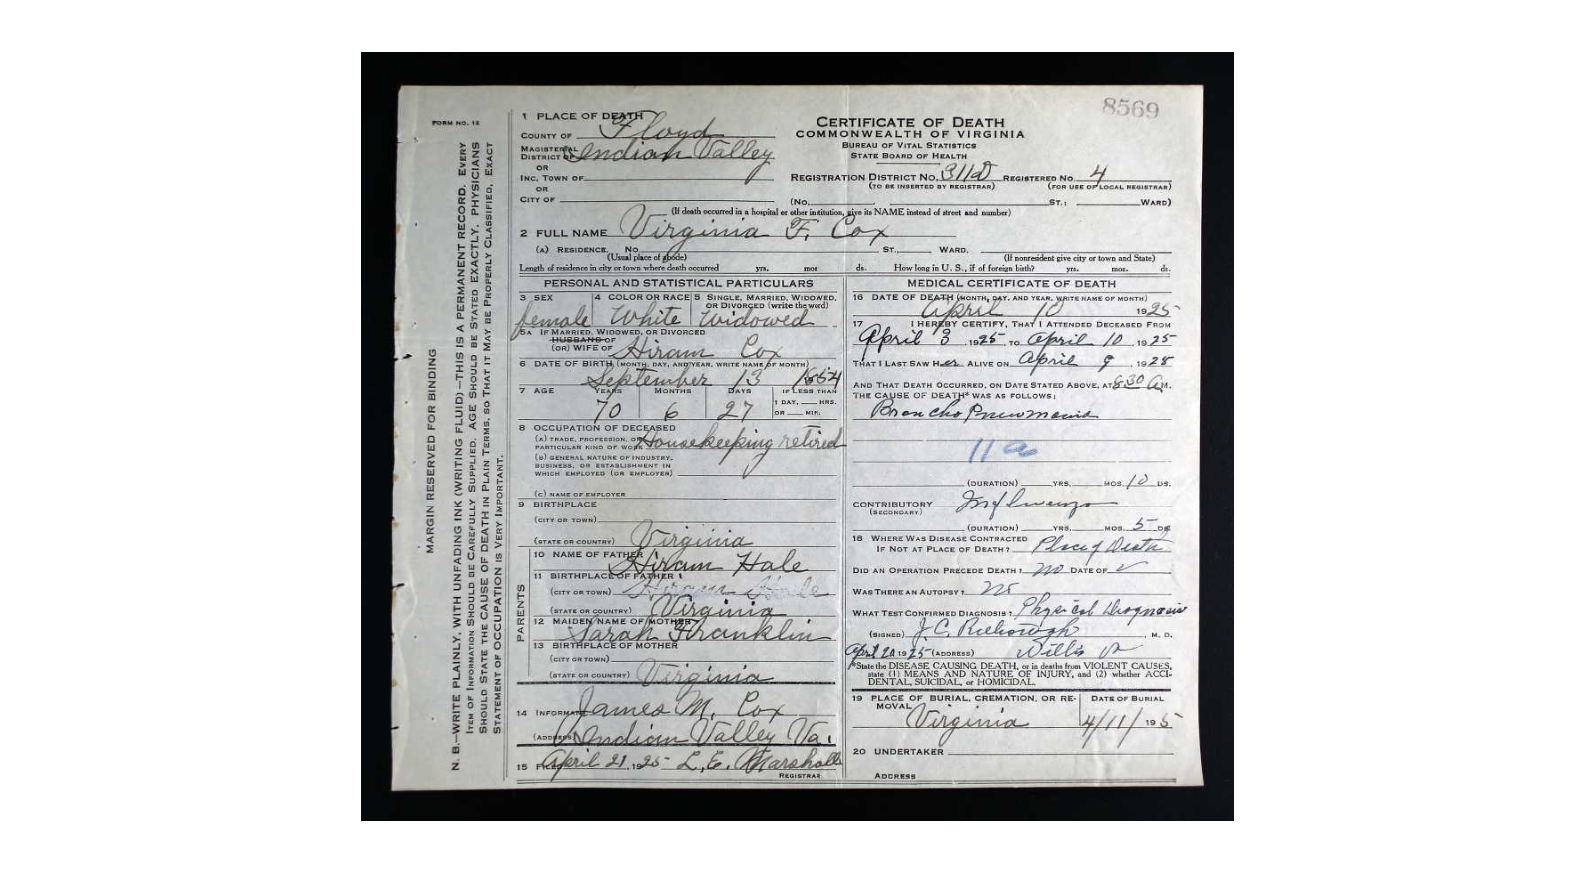 8569
FORM NO. 12
MARGIN RESERVED FOR BINDING
N. B.—WRITE PLAINLY, WITH UNFADING INK (WRITING FLUID)—THIS IS A PERMANENT RECORD. EVERY
ITEM OF INFORMATION SHOULD BE CAREFULLY SUPPLIED. AGE SHOULD BE STATED EXACTLY. PHYSICIANS
SHOULD STATE THE CAUSE OF DEATH IN PLAIN TERMS, SO THAT IT MAY BE PROPERLY CLASSIFIED. EXACT
STATEMENT OF OCCUPATION IS VERY IMPORTANT.
1 PLACE OF DEATH
COUNTY OF Floyd
MAGISTERIAL
DISTRICT OF Indian Valley
OR
INC. TOWN OF
OR
CITY OF
CERTIFICATE OF DEATH
COMMONWEALTH OF VIRGINIA
BUREAU OF VITAL STATISTICS
STATE BOARD OF HEALTH
REGISTRATION DISTRICT NO. 311D REGISTERED NO. 4
(TO BE INSERTED BY REGISTRAR) (FOR USE OF LOCAL REGISTRAR)
(NO. ST.; WARD)
(If death occurred in a hospital or other institution, give its NAME instead of street and number)
2 FULL NAME Virginia F. Cox
(A) RESIDENCE. No. ST. WARD.
(Usual place of abode) (If nonresident give city or town and State)
Length of residence in city or town where death occurred yrs. mos ds. How long in U. S., if of foreign birth? yrs. mos. ds.
PERSONAL AND STATISTICAL PARTICULARS
3 SEX 4 COLOR OR RACE 5 SINGLE, MARRIED, WIDOWED,
OR DIVORCED (write the word)
female White Widowed
5A IF MARRIED, WIDOWED, OR DIVORCED
HUSBAND OF
(OR) WIFE OF Hiram Cox
6 DATE OF BIRTH (MONTH, DAY, AND YEAR, WRITE NAME OF MONTH)
September 13 1854
7 AGE YEARS MONTHS DAYS IF LESS THAN
1 DAY, HRS.
OR MIN.
70 6 27
8 OCCUPATION OF DECEASED
(A) TRADE, PROFESSION, OR
PARTICULAR KIND OF WORK Housekeeping retired
(B) GENERAL NATURE OF INDUSTRY,
BUSINESS, OR ESTABLISHMENT IN
WHICH EMPLOYED (OR EMPLOYER)
(C) NAME OF EMPLOYER
9 BIRTHPLACE
(CITY OR TOWN)
(STATE OR COUNTRY) Virginia
PARENTS
10 NAME OF FATHER Hiram Hale
11 BIRTHPLACE OF FATHER
(CITY OR TOWN) Hiram Hale
(STATE OR COUNTRY) Virginia
12 MAIDEN NAME OF MOTHER Sarah Franklin
13 BIRTHPLACE OF MOTHER
(CITY OR TOWN)
(STATE OR COUNTRY) Virginia
14 INFORMANT James M. Cox
(ADDRESS) Indian Valley Va.
15 FILED April 21, 1925 L. E. Marshall
REGISTRAR
MEDICAL CERTIFICATE OF DEATH
16 DATE OF DEATH (MONTH, DAY, AND YEAR, WRITE NAME OF MONTH)
April 10 1925
17 I HEREBY CERTIFY, THAT I ATTENDED DECEASED FROM
April 3, 1925, TO April 10, 1925
THAT I LAST SAW Her ALIVE ON April 9, 1925
AND THAT DEATH OCCURRED, ON DATE STATED ABOVE, AT 8:30 A M.
THE CAUSE OF DEATH* WAS AS FOLLOWS:
Broncho Pneumonia
11a
(DURATION) YRS. MOS. 10 DS.
CONTRIBUTORY Influenza
(SECONDARY)
(DURATION) YRS. MOS. 5 DS
18 WHERE WAS DISEASE CONTRACTED
IF NOT AT PLACE OF DEATH? Place of Death
DID AN OPERATION PRECEDE DEATH? No DATE OF
WAS THERE AN AUTOPSY? No
WHAT TEST CONFIRMED DIAGNOSIS? Physical Diagnosis
(SIGNED) J. C. , M. D.
April 20 1925 (ADDRESS) Willis Va
*State the DISEASE CAUSING DEATH, or in deaths from VIOLENT CAUSES,
state (1) MEANS AND NATURE OF INJURY, and (2) whether ACCI-
DENTAL, SUICIDAL, or HOMICIDAL.
19 PLACE OF BURIAL, CREMATION, OR RE- DATE OF BURIAL
MOVAL
Virginia 4/11/ 195
20 UNDERTAKER
ADDRESS